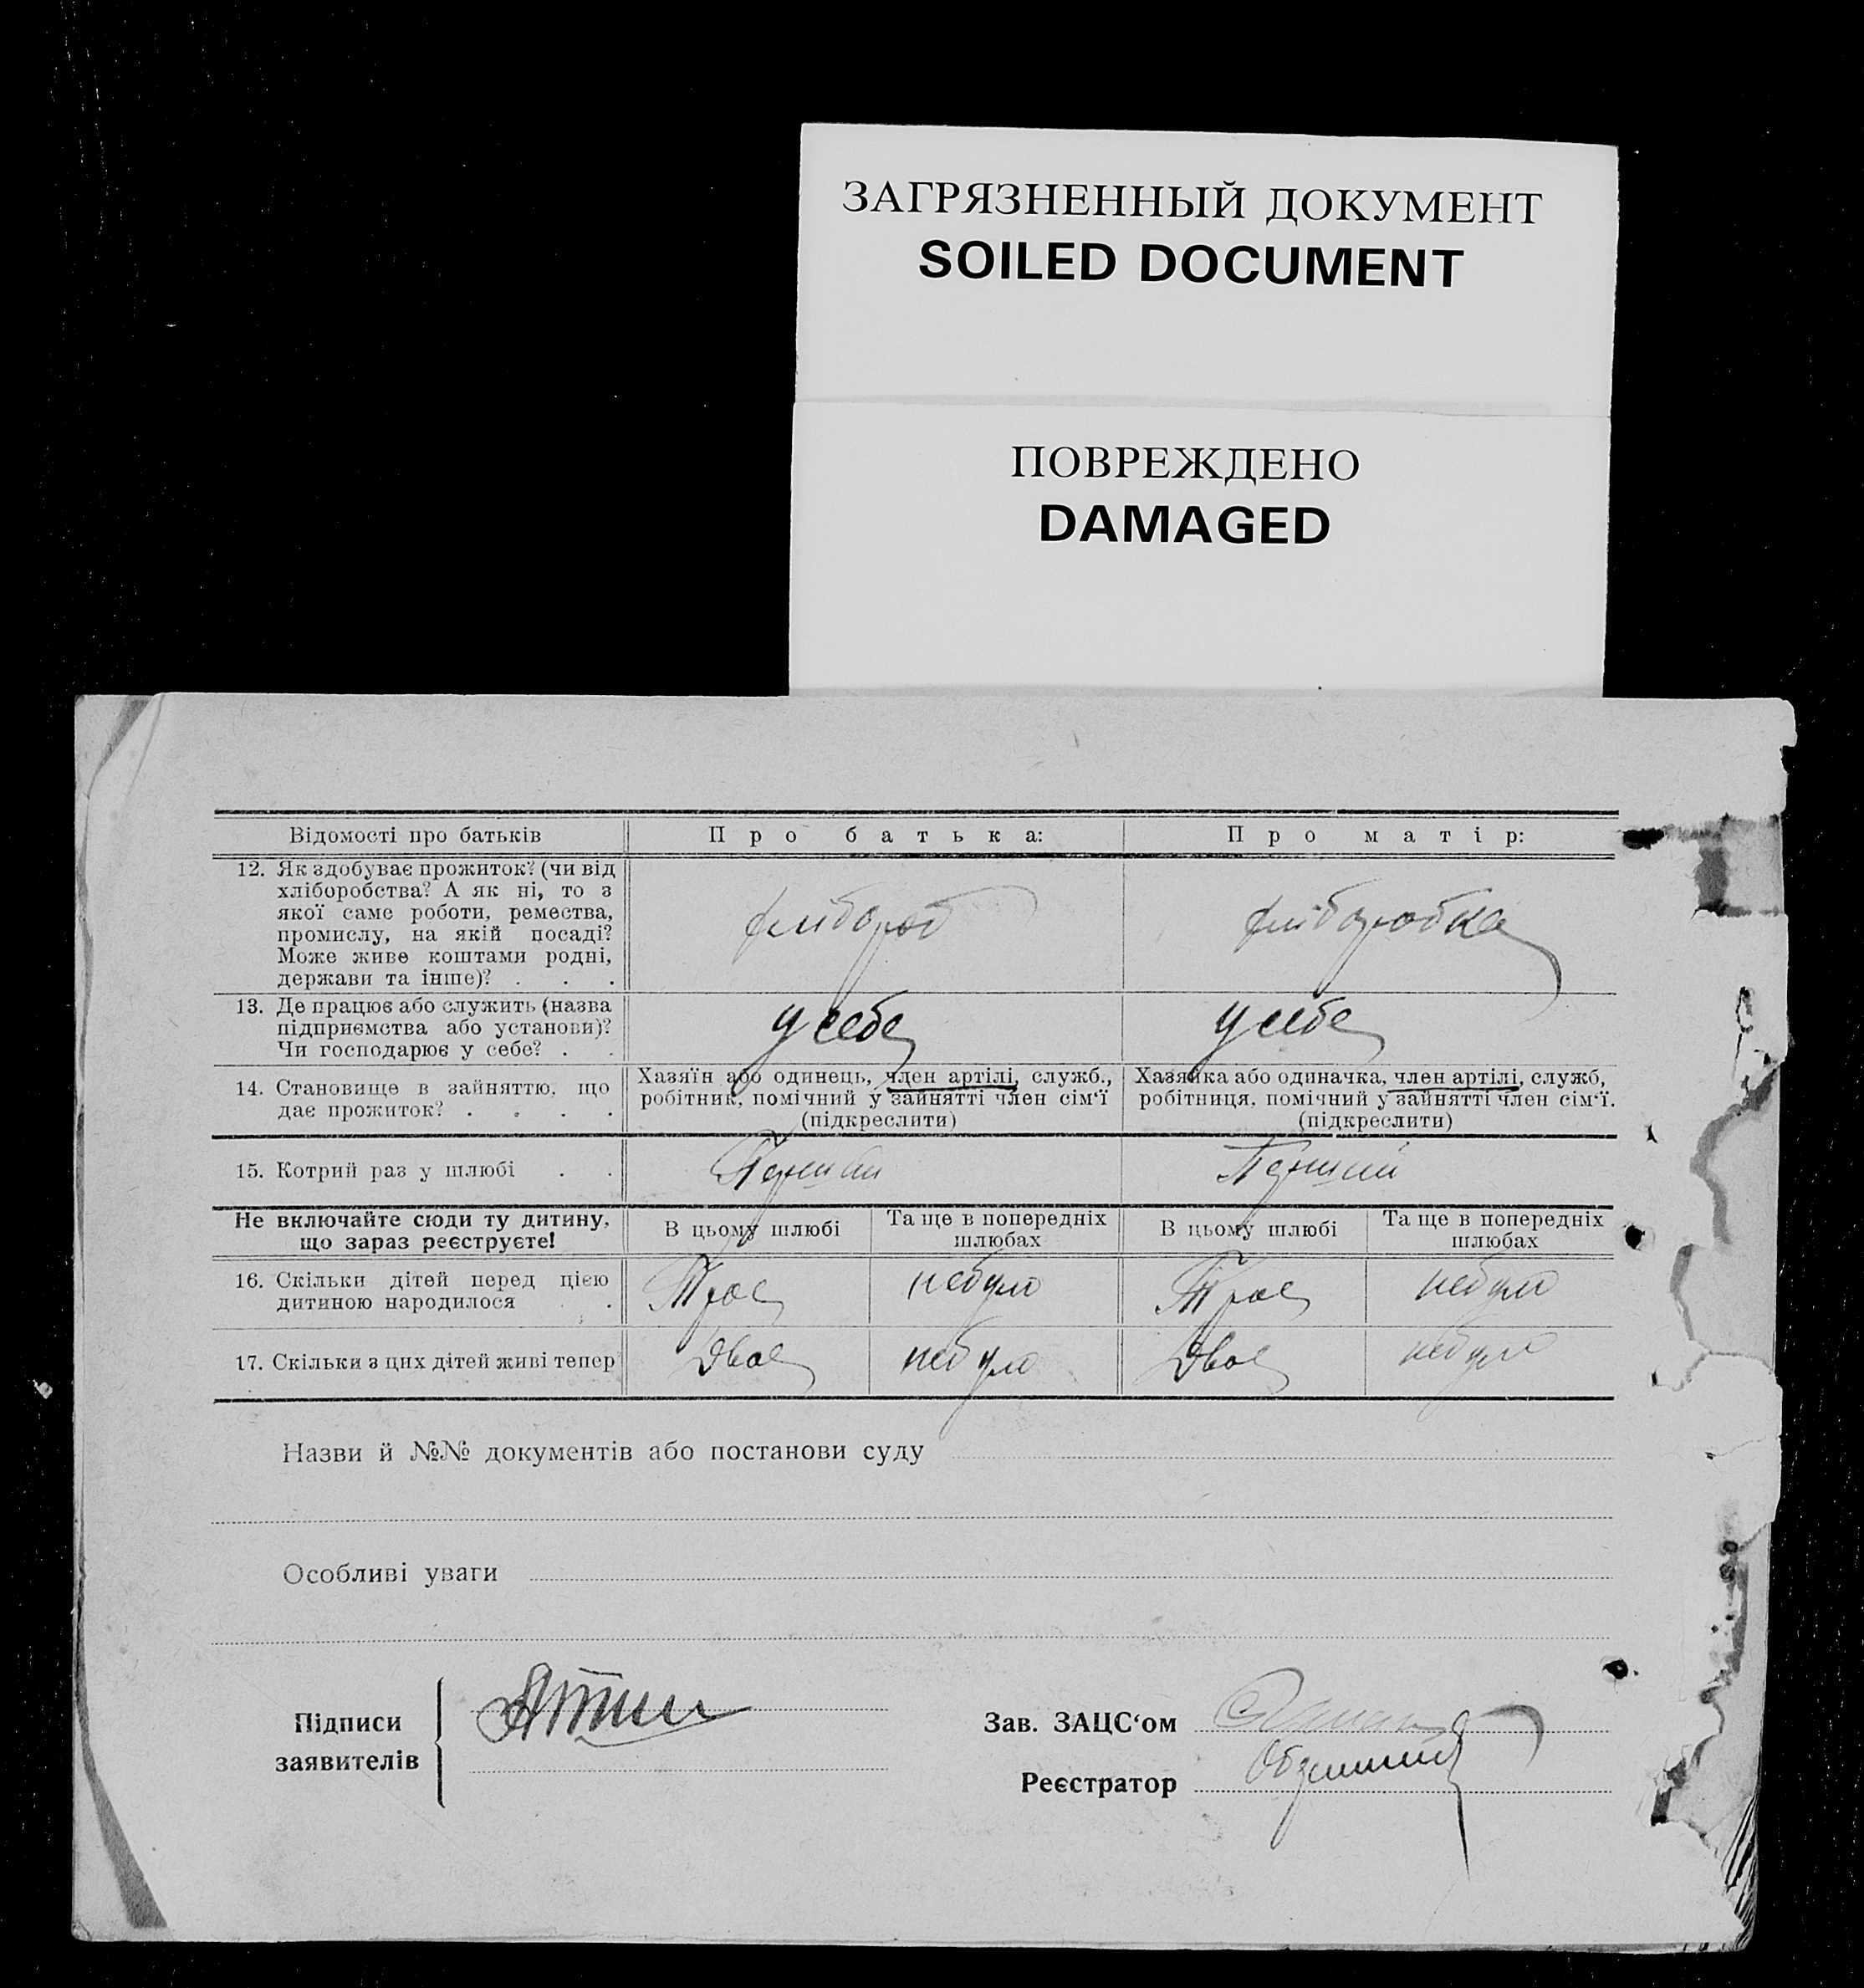 ЗАГРЯЗНЕННЫЙ ДОКУМЕНТ
SOILED DOCUMENT
ПОВРЕЖДЕНО
DAMAGED
Відомості про батьків Про батька: Про матір:
12. Як здобуває прожиток? (чи від
хліборобства? А як ні, то з
якої саме роботи, ремества,
промислу, на якій посаді?
Може живе коштами родні,
держави та інше)? . . .
хлібороб хліборобка
13. Де працює або служить (назва
підприємства або установи)?
Чи господарює у себе? . .
у себе у себе
14. Становище в зайняттю, що
дає прожиток? . . . .
Хазяїн або одинець, член артілі, служб.,
робітник, помічний у зайнятті член сім'ї
(підкреслити)
Хазяйка або одиначка, член артілі, служб,
робітниця, помічний у зайнятті член сім'ї.
(підкреслити)
15. Котрий раз у шлюбі . . Перший
Не включайте сюди ту дитину,
що зараз реєструєте!
В цьому шлюбі Та ще в попередніх
шлюбах
В цьому шлюбі Та ще в попередніх
шлюбах
16. Скільки дітей перед цією
дитиною народилося .
Троє небуло Троє небуло
17. Скільки з цих дітей живі тепер Двоє небуло Двоє небуло
Назви й №№ документів або постанови суду
Особливі уваги
Підписи
заявителів
Зав. ЗАЦС'ом
Реєстратор